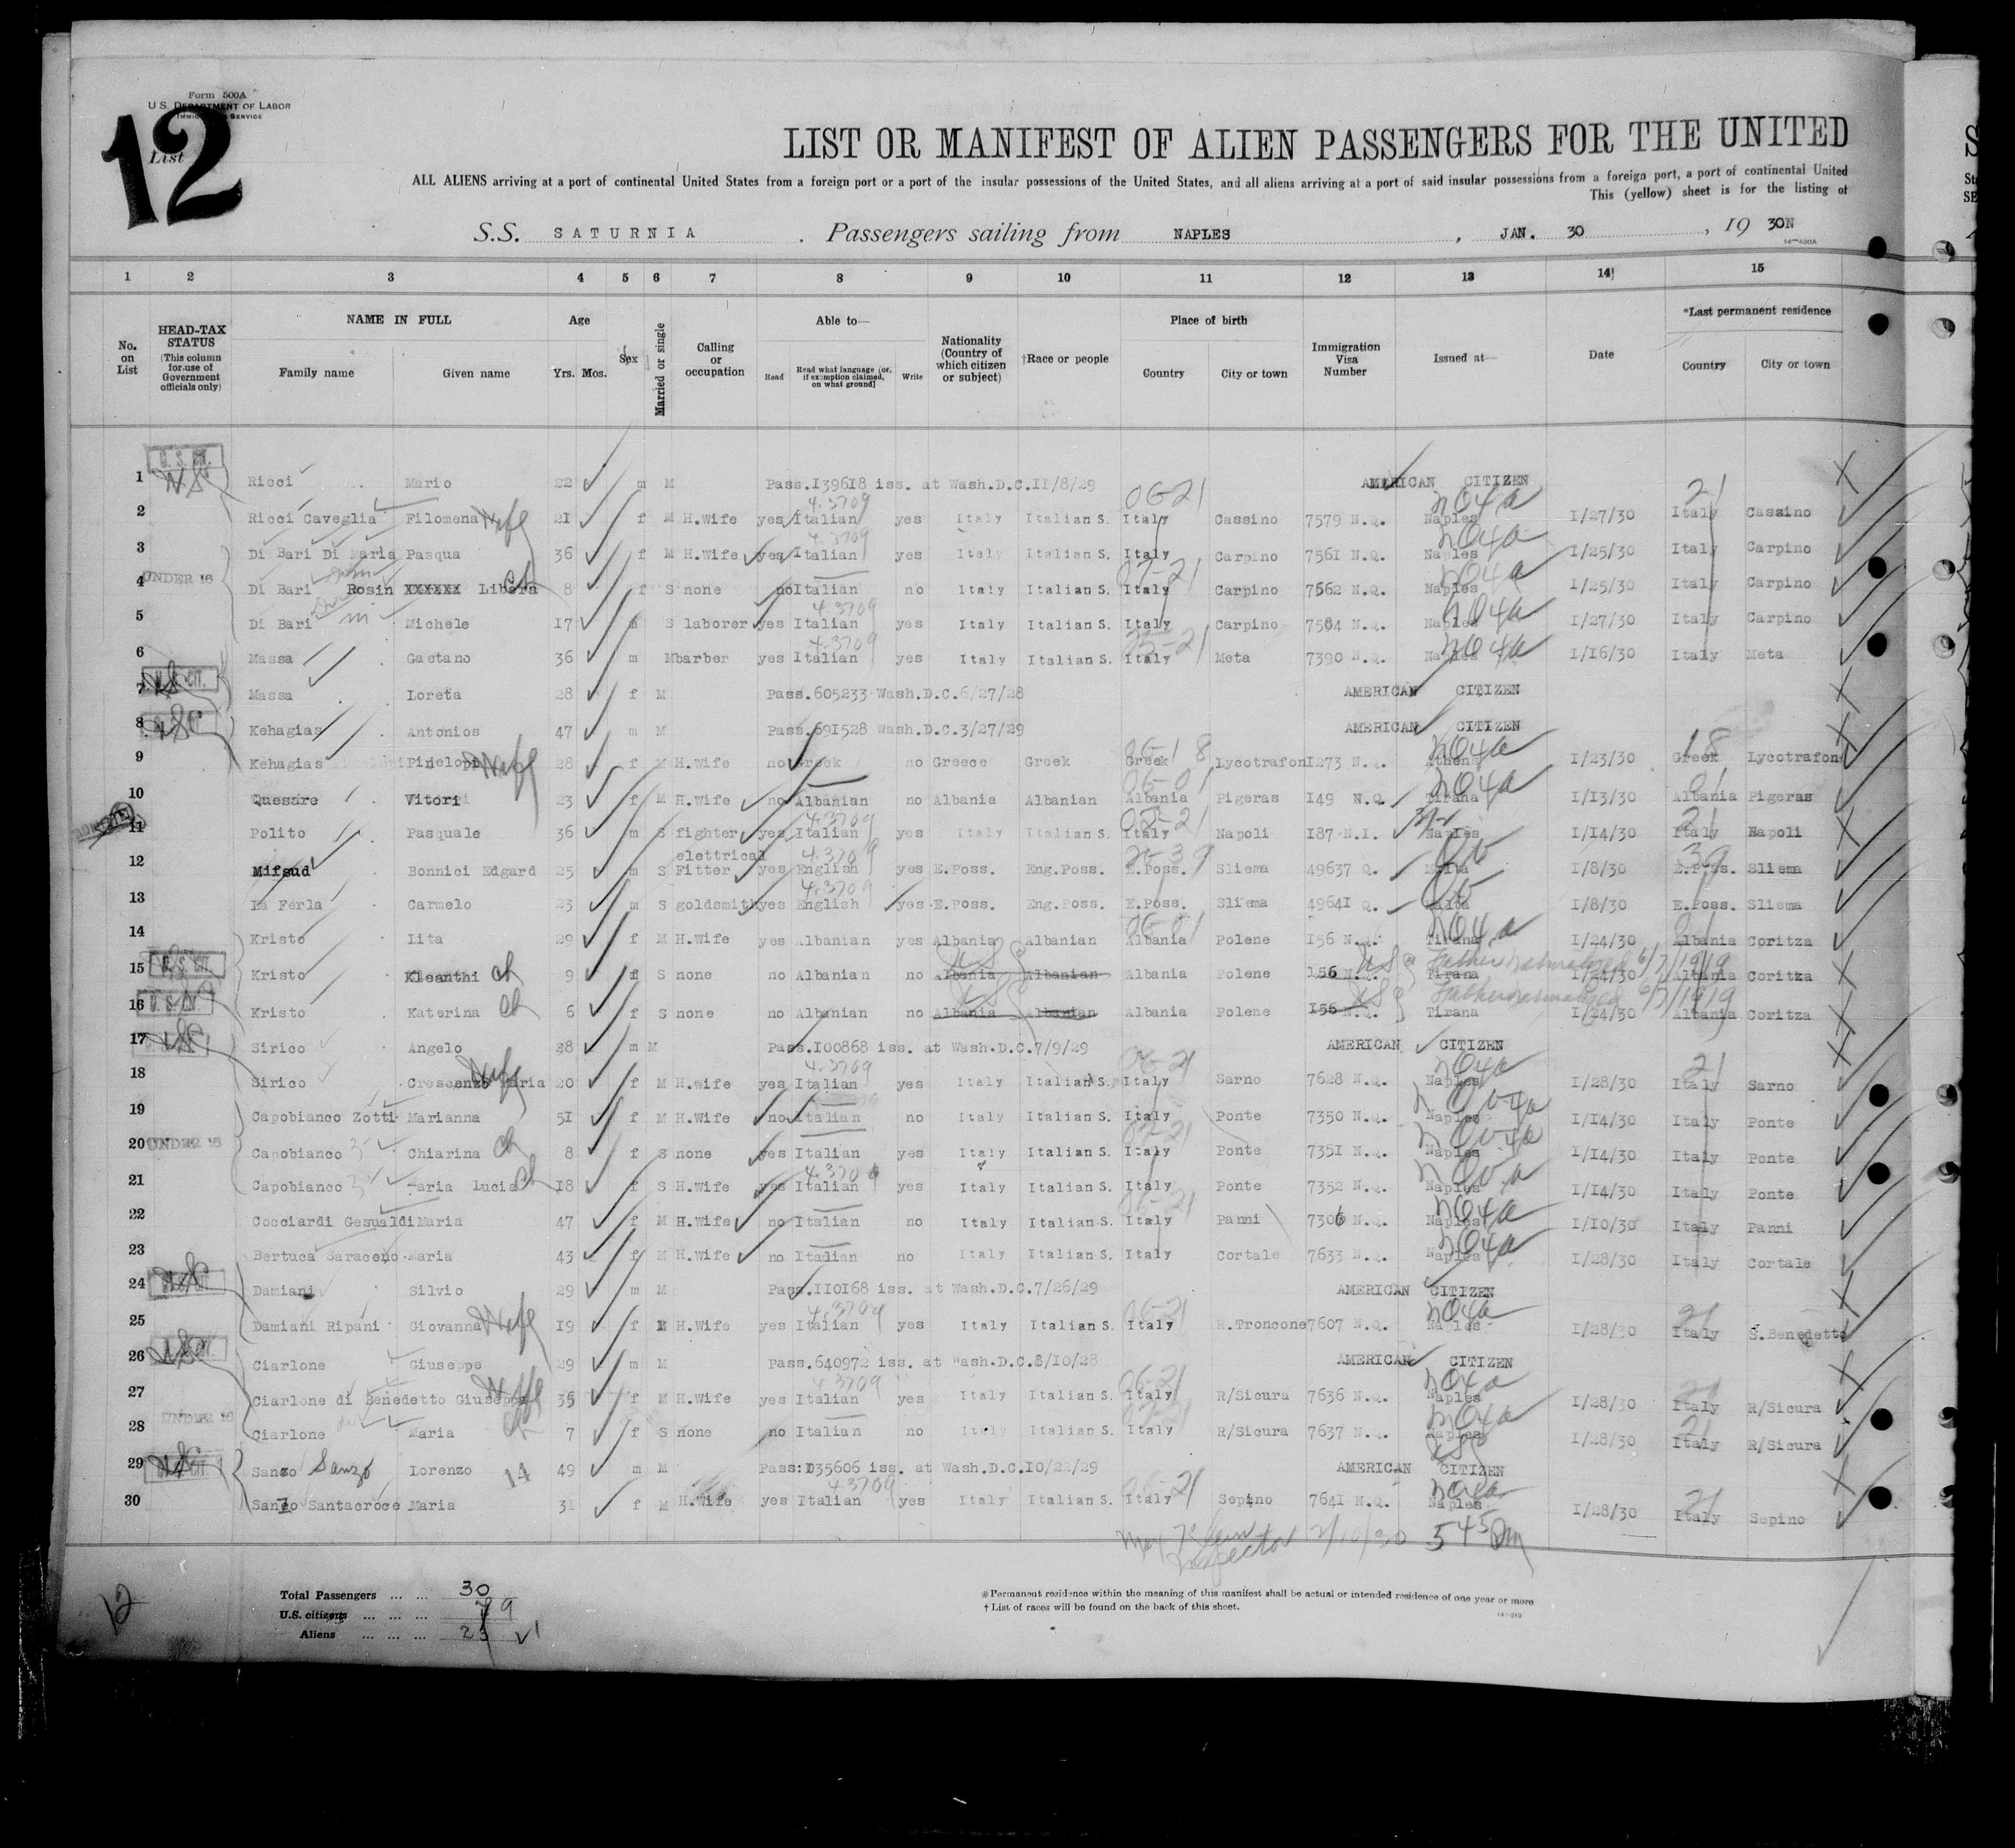 Form 500A
U.S. DEPARTMENT OF LABOR
IMMIGRATION SERVICE
12
List
LIST OR MANIFEST OF ALIEN PASSENGERS FOR THE UNITED
ALL ALIENS arriving at a port of continental United States from a foreign port or a port of the insular possessions of the United States, and all aliens arriving at a port of said insular possessions from a foreign port, a port of continental United
This (yellow) sheet is for the listing of
S.S. SATURNIA . Passengers sailing from NAPLES , JAN. 30 , 19 30N
14—400A
1 2 3 4 5 6 7 8 9 10 11 12 13 14 15
No. on List
HEAD-TAX STATUS (This column for use of Government officials only)
NAME IN FULL
Family name Given name
Age
Yrs. Mos.
Sex
Married or single
Calling or occupation
Able to—
Read Read what language [or, if exemption claimed, on what ground] Write
Nationality (Country of which citizen or subject)
†Race or people
Place of birth
Country City or town
Immigration Visa Number
Issued at—
Date
*Last permanent residence
Country City or town
1 U.S. CIT. Ricci Mario 22 m M Pass.139618 iss. at Wash.D.C.11/8/29 AMERICAN CITIZEN
2 Ricci Caveglia Filomena Wife 21 f M H.Wife yes Italian yes Italy Italian S. Italy Cassino 7579 N.Q. Naples 1/27/30 Italy Cassino
3 Di Bari Di Maria Pasqua 36 f M H.Wife yes Italian yes Italy Italian S. Italy Carpino 7561 N.Q. Naples 1/25/30 Italy Carpino
4 UNDER 16 Di Bari Rosin XXXXXX Libera 8 f S none no Italian no Italy Italian S. Italy Carpino 7562 N.Q. Naples 1/25/30 Italy Carpino
5 Di Bari Michele 17 m S laborer yes Italian yes Italy Italian S. Italy Carpino 7584 N.Q. Naples 1/27/30 Italy Carpino
6 Massa Gaetano 36 m M barber yes Italian yes Italy Italian S. Italy Meta 7390 N.Q. Naples 1/16/30 Italy Meta
7 U.S. CIT. Massa Loreta 28 f M Pass.605233 Wash.D.C.6/27/28 AMERICAN CITIZEN
8 Kehagias Antonios 47 m M Pass.691528 Wash.D.C.3/27/29 AMERICAN CITIZEN
9 Kehagias Pinelopi Wife 28 f M H.Wife no Greek no Greece Greek Greek Lycotrafon 1273 N.Q. Athens 1/23/30 Greek Lycotrafon
10 Quesare Vitori 23 f M H.Wife no Albanian no Albania Albanian Albania Pigeras 149 N.Q. Tirana 1/13/30 Albania Pigeras
11 Polito Pasquale 36 m S fighter yes Italian yes Italy Italian S. Italy Napoli 187 N.I. Naples 1/14/30 Italy Napoli
12 Mifsud Bonnici Edgard 25 m S elettrical Fitter yes English yes E.Poss. Eng.Poss. E.Poss. Sliema 49637 Q. Malta 1/8/30 E.Poss. Sliema
13 La Ferla Carmelo 23 m S goldsmith yes English yes E.Poss. Eng.Poss. E.Poss. Sliema 49641 Q. Malta 1/8/30 E.Poss. Sliema
14 Kristo Lita 29 f M H.Wife yes Albanian yes Albania Albanian Albania Polene 156 N.Q. Tirana 1/24/30 Albania Coritza
15 U.S. CIT. Kristo Kleanthi ch 9 f S none no Albanian no Albania Albanian Albania Polene 156 N.Q. Tirana Father naturalized 6/7/1919 1/24/30 Albania Coritza
16 U.S. CIT. Kristo Katerina ch 6 f S none no Albanian no Albania Albanian Albania Polene 156 N.Q. Tirana Father naturalized 6/7/1919 1/24/30 Albania Coritza
17 Sirico Angelo 38 m M Pass.100868 iss. at Wash.D.C.7/9/29 AMERICAN CITIZEN
18 Sirico Crescenzo Maria Wife 20 f M H.Wife yes Italian yes Italy Italian S. Italy Sarno 7628 N.Q. Naples 1/28/30 Italy Sarno
19 Capobianco Zotti Marianna 51 f M H.Wife no Italian no Italy Italian S. Italy Ponte 7350 N.Q. Naples 1/14/30 Italy Ponte
20 UNDER 16 Capobianco Chiarina ch 8 f S none yes Italian yes Italy Italian S. Italy Ponte 7351 N.Q. Naples 1/14/30 Italy Ponte
21 Capobianco Maria Lucia ch 18 f S H.Wife yes Italian yes Italy Italian S. Italy Ponte 7352 N.Q. Naples 1/14/30 Italy Ponte
22 Cocciardi Gesualdi Maria 47 f M H.Wife no Italian no Italy Italian S. Italy Panni 7306 N.Q. Naples 1/10/30 Italy Panni
23 Bertuca Saraceno Maria 43 f M H.Wife no Italian no Italy Italian S. Italy Cortale 7633 N.Q. Naples 1/28/30 Italy Cortale
24 Damiani Silvio 29 m M Pass.110168 iss. at Wash.D.C.7/26/29 AMERICAN CITIZEN
25 Damiani Ripani Giovanna Wife 19 f M H.Wife yes Italian yes Italy Italian S. Italy R.Troncone 7607 N.Q. Naples 1/28/30 Italy S.Benedetto
26 Ciarlone Giuseppe 29 m M Pass.640972 iss. at Wash.D.C.8/10/28 AMERICAN CITIZEN
27 Ciarlone di Benedetto Giuseppa Wife 35 f M H.Wife yes Italian yes Italy Italian S. Italy R/Sicura 7636 N.Q. Naples 1/28/30 Italy R/Sicura
28 UNDER 16 Ciarlone Maria ch 7 f S none no Italian no Italy Italian S. Italy R/Sicura 7637 N.Q. Naples 1/28/30 Italy R/Sicura
29 Sanzo Sanzo Lorenzo 14 49 m M Pass:135606 iss. at Wash.D.C.10/22/29 AMERICAN CITIZEN
30 Sanzo Santacroce Maria 31 f M H.Wife yes Italian yes Italy Italian S. Italy Sepino 7641 N.Q. Naples 1/28/30 Italy Sepino
Inspector 2/10/30 5 45 Pm
12
Total Passengers ... ... 30
U.S. citizens ... ... ... 9
Aliens ... ... ... 21
*Permanent residence within the meaning of this manifest shall be actual or intended residence of one year or more
† List of races will be found on the back of this sheet.